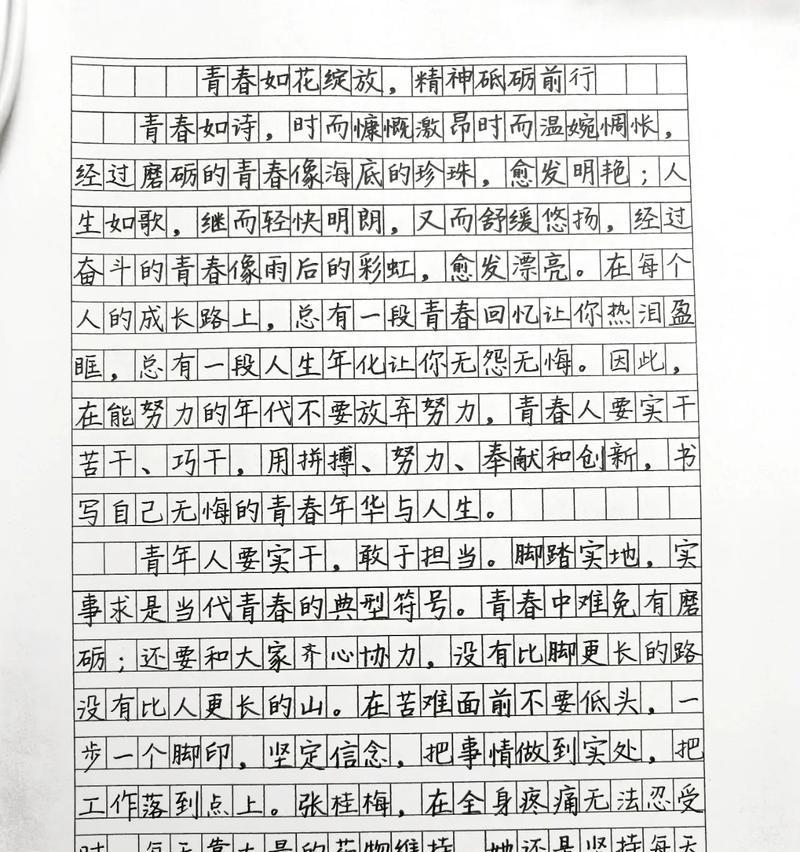 青春如花绽放，精神砥砺前行
青春如诗，时而慷慨激昂时而温婉惆怅，
经过磨砺的青春像海底的珍珠，愈发明艳；人
生如歌，继而轻快明朗，又而舒缓悠扬，经过
奋斗的青春像雨后的彩虹，愈发漂亮。在每个
人的成长路上，总有一段青春回忆让你热泪盈
眶，总有一段人生年化让你无怨无悔。因此，
在能努力的年代不要放弃努力，青春人要实干
苦干、巧干，用拼搏、努力、奉献和创新，书
写自己无悔的青春年华与人生。
青年人要实干，敢于担当。脚踏实地，实
事求是当代青春的典型符号。青春中难免有磨
砺；还要和大家齐心协力，没有比脚更长的路
没有比人更长的山。在苦难面前不要低头，一
步一个脚印，坚定信念，把事情做到实处，把
工作落到点上。张桂梅，在全身疼痛无法忍受
时，每天靠大量的药物维持，她还是坚持每天